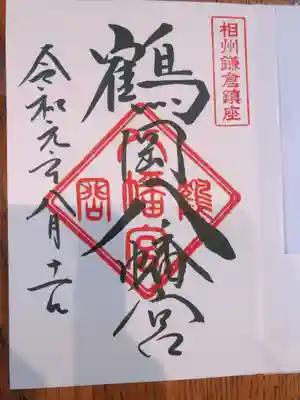 相州鎌倉鎮座
鶴岡八幡宮
令和元年八月十一日
鶴岡八幡宮